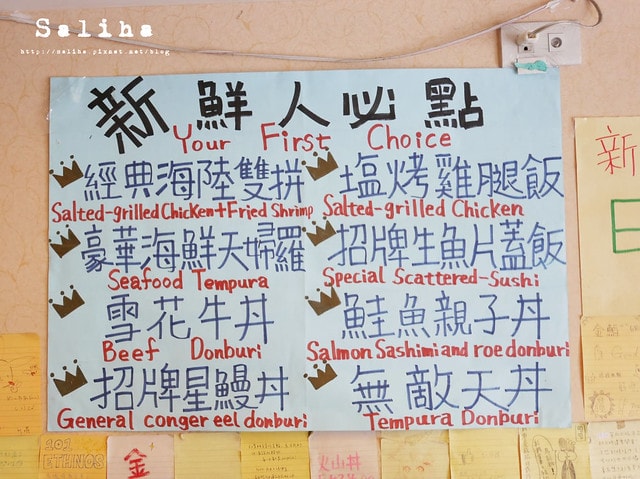 Saliha
http://saliha.pixnet.net/blog
新鮮人必點
Your First Choice
經典海陸雙拼
Salted-grilled Chicken+Fried Shrimp
塩烤雞腿飯
Salted-grilled Chicken
豪華海鮮天婦羅
Seafood Tempura
招牌生魚片蓋飯
Special Scattered-Sushi
雪花牛丼
Beef Donburi
鮭魚親子丼
Salmon Sashimi and roe donburi
招牌星鰻丼
General conger eel donburi
無敵天丼
Tempura Donburi
新
日
101
ETHNOS
金
火山丼